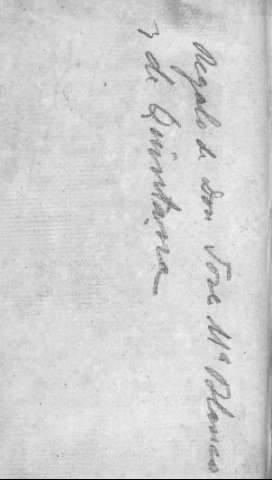 Regalo de Don Jose Mª Polanco
y de Quintana